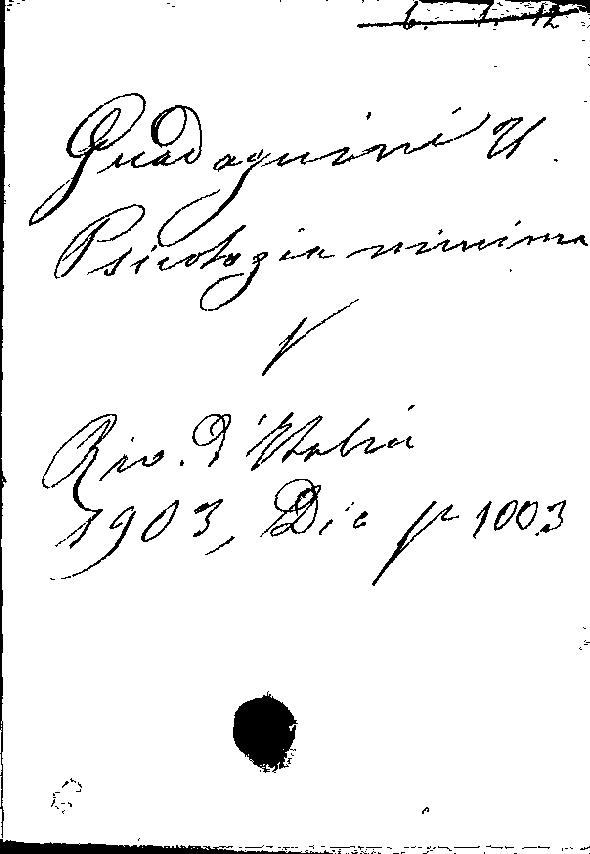 6. 7. 12
Guadagnini U.
Psicologia minima
V
Riv. d'Italia
1903, Dic p 1003